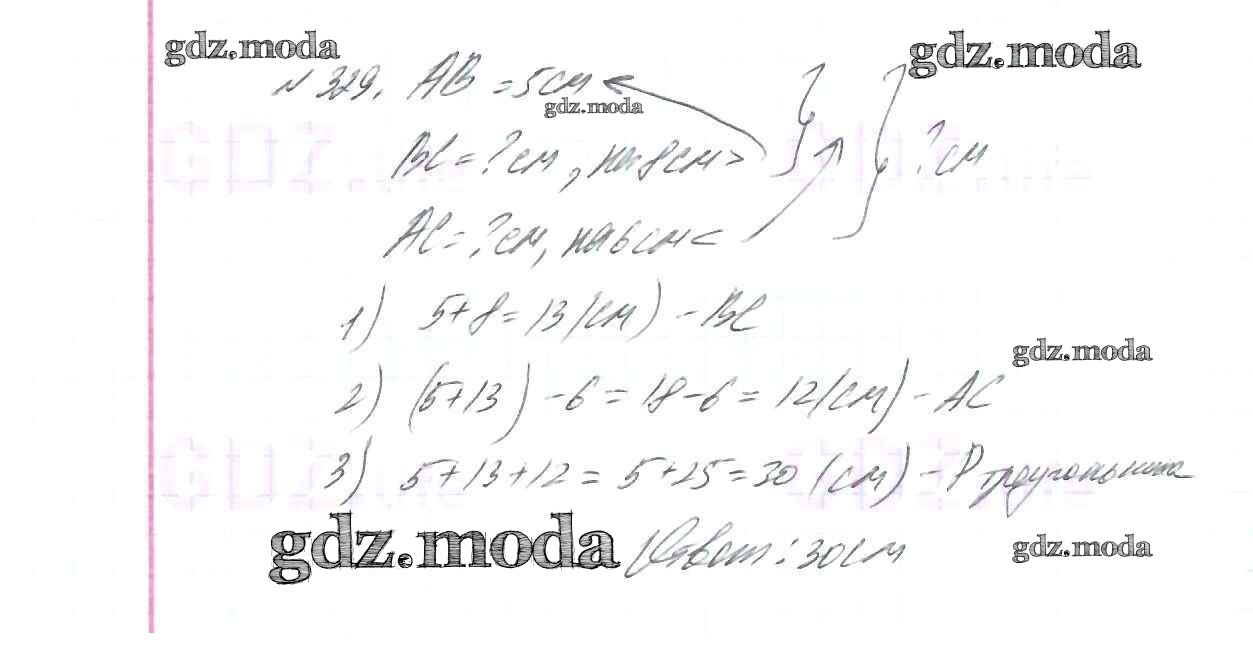 gdz.moda
gdz.moda
№ 329. AB = 5см
gdz.moda
BC = ? см, на 8 см >
? см
AC = ? см, на 6 см <
1) 5+8 = 13 (см) - BC
gdz.moda
2) (5+13) - 6 = 18 - 6 = 12 (см) - AC
3) 5+13+12 = 5+25 = 30 (см) - P треугольника
gdz.moda
Ответ: 30 см
gdz.moda